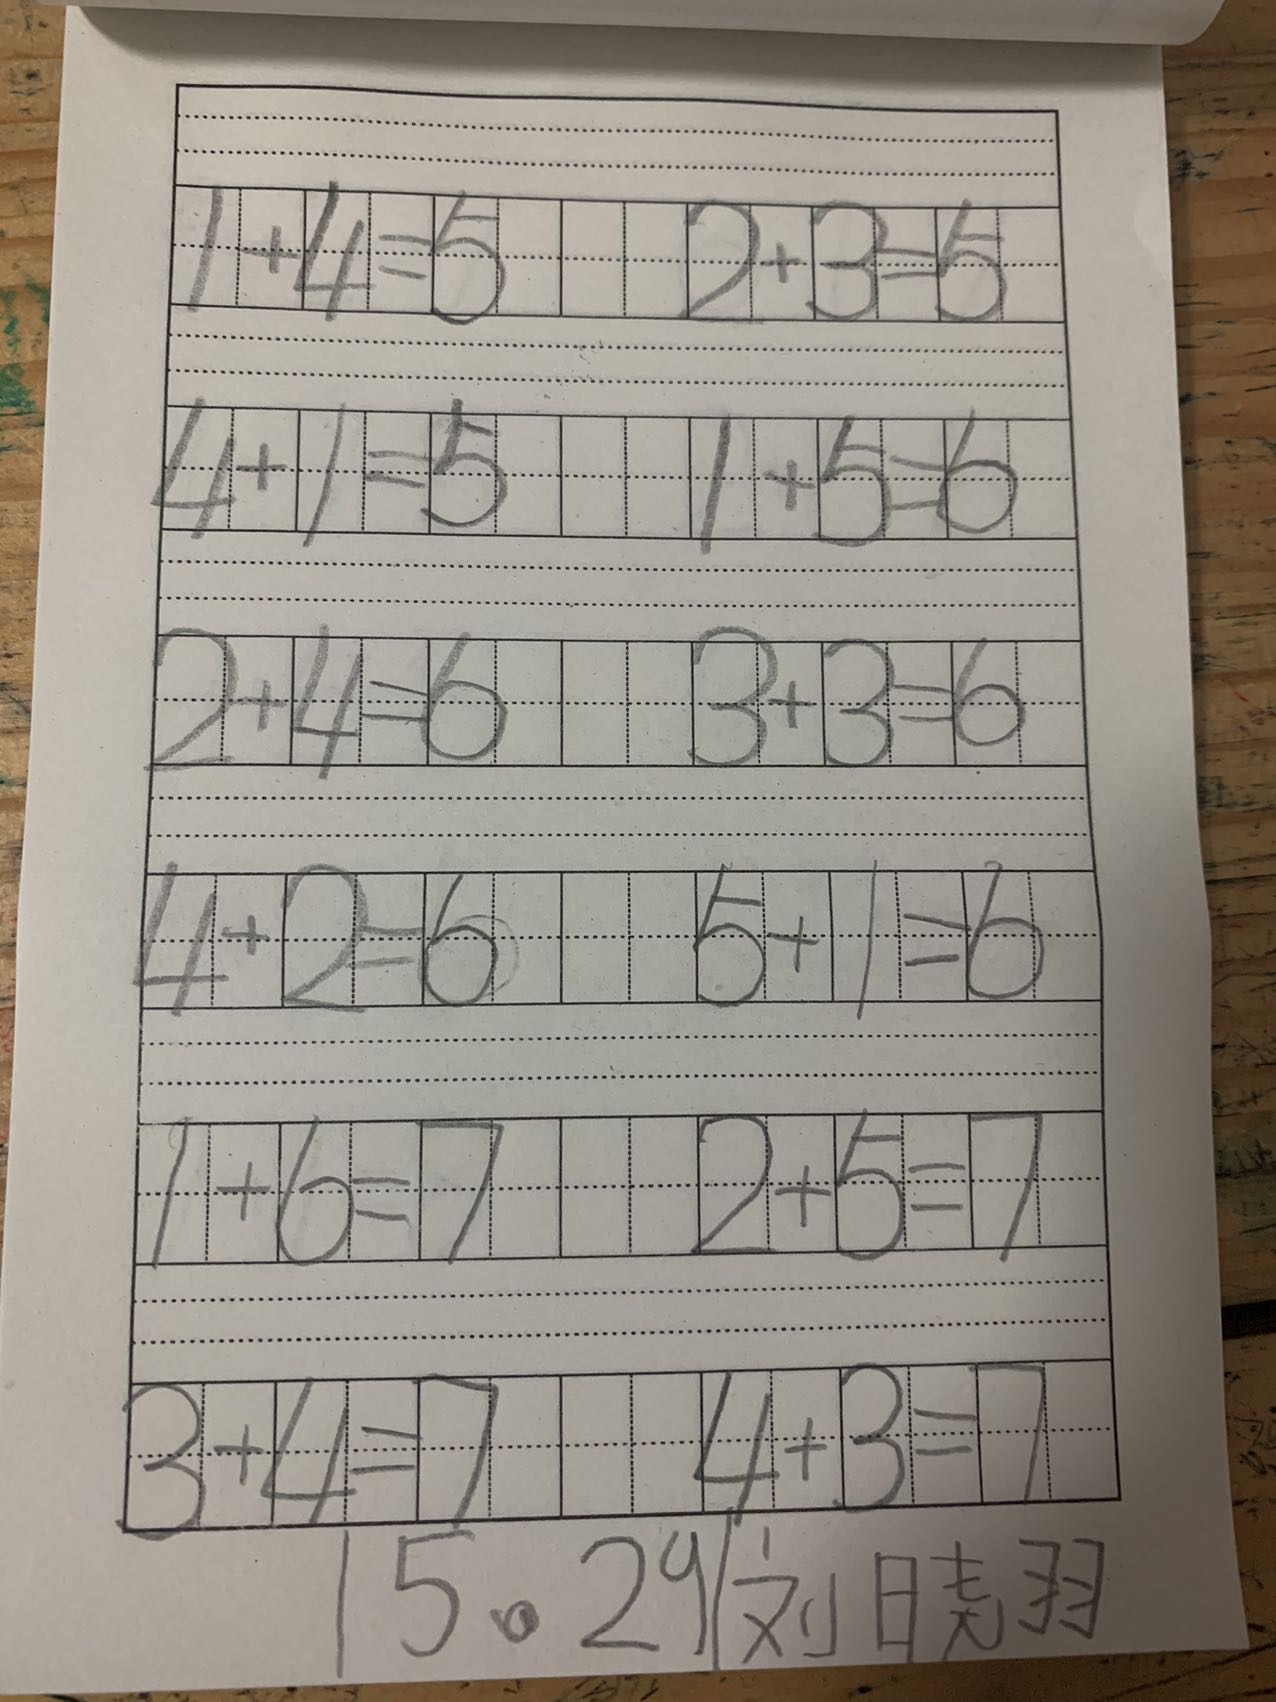 1+4=5 2+3=5
4+1=5 1+5=6
2+4=6 3+3=6
4+2=6 5+1=6
1+6=7 2+5=7
3+4=7 4+3=7
|5.29|刘晓羽